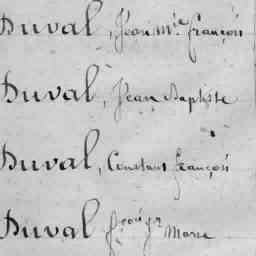 Duval, Jean M.ie François
Duval, Jean Baptiste
Duval, Constant François
Duval, Marie